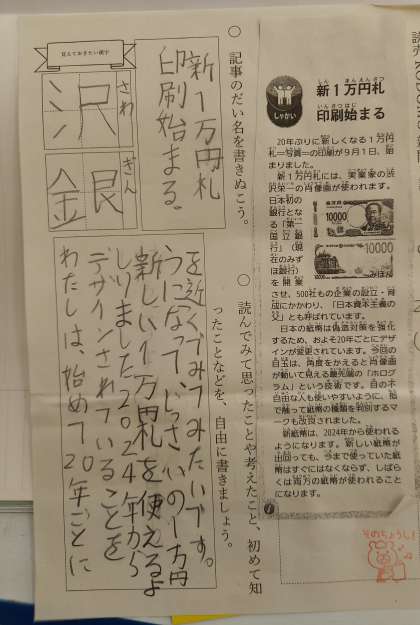 新１万円札
印刷始まる
しゃかい
20年ぶりに新しくなる１万円
札＝写真＝の印刷が９月１日、始
まりました。
新１万円札には、実業家の渋
沢栄一の肖像画が使われます。
日本初の
銀行とな
る「第一
国立銀
行」（現
在のみず
ほ銀行）
を開業
させ、500社もの企業の設立・育
成にかかわり、「日本資本主義の
父」とも呼ばれています。
日本の紙幣は偽造対策を強化
するため、およそ20年ごとにデザ
インが変更されています。今回の
目玉は、角度をかえると肖像画
が動いて見える最先端の「ホログ
ラム」という技術です。目の不
自由な人も使いやすいように、指
で触って紙幣の種類を判別するマ
ークも改良されました。
新紙幣は、2024年から使われる
ようになります。新しい紙幣が
出回っても、今まで使っていた紙
幣はすぐにはなくならず、しばら
くは両方の紙幣が使われること
になります。
10000
10000
みほん
○ 記事のだい名を書きぬこう。
新１万円札
印刷始まる。
覚えておきたい漢字
さわ
沢
ぎん
銀
○ 読んでみて思ったことや考えたこと、初めて知
ったことなどを、自由に書きましょう。
わたしは、始めて20年ごとに
デザインされていることを
しりました。2024年から
新しい１万円札を使えるよ
うになってじっさいの１万円
を近くでみてみたいです。
そのちょうし！